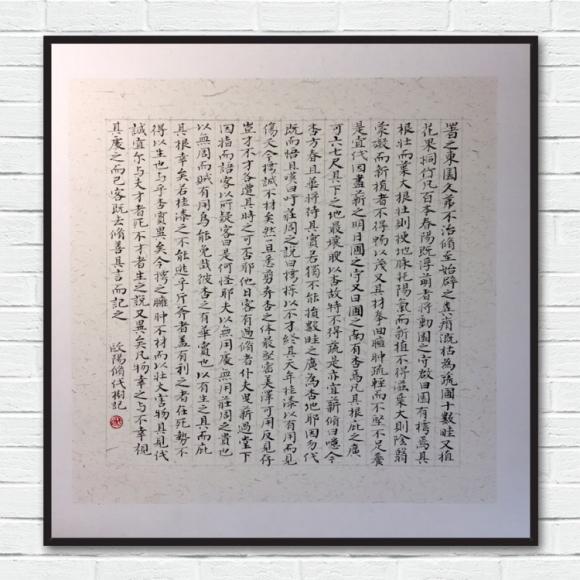 署之東園久茀不治脩至始辟之糞瘠溉枯為蔬圃十數畦又植
花果桐竹凡百本春陽既浮萌者將動園之守啟曰園有樗焉其
根壯而葉大根壯則梗地脉耗陽氣而新植不得滋葉大則陰翳
蒙礙而新植者不得暢以茂又其材拳曲臃腫疏輕而不堅不足養
是宜伐因盡薪之明日圃之守又曰圃之南有杏焉凡其根庇之廣
可六七尺其下之地最壤腴以杏故特不得蔬是亦宜薪脩曰噫今
杏方春且華將待其實若獨不能損數畦之廣為杏地耶因勿伐
既而悟且嘆曰吁莊周之說曰樗櫟以不才終其天年桂漆以有用而見
傷夭今樗誠不材矣然一旦悉翦弃杏之体最堅密美澤可用反見存
豈才不才各遭其時之可否耶他日客有過脩者仆夫曳薪過堂下
因指而語客以所疑客曰是何怪耶夫以無用處無用莊周之貴也
以無用而賊有用烏能免哉彼杏之有華實也以有生之具而庇
其根幸矣若桂漆之不能逃乎斤斧者盖有利之者在死勢不
得以生也与乎杏實異矣今樗之臃腫不材而以壯大害物其見伐
誠宜尔与夫才者死不才者生之說又異矣凡物幸之与不幸視
其處之而已客既去脩善其言而記之
歐陽脩伐樹記